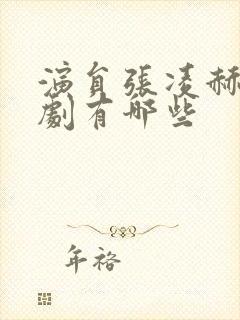 演員張凌赫
劇有哪些
年裕